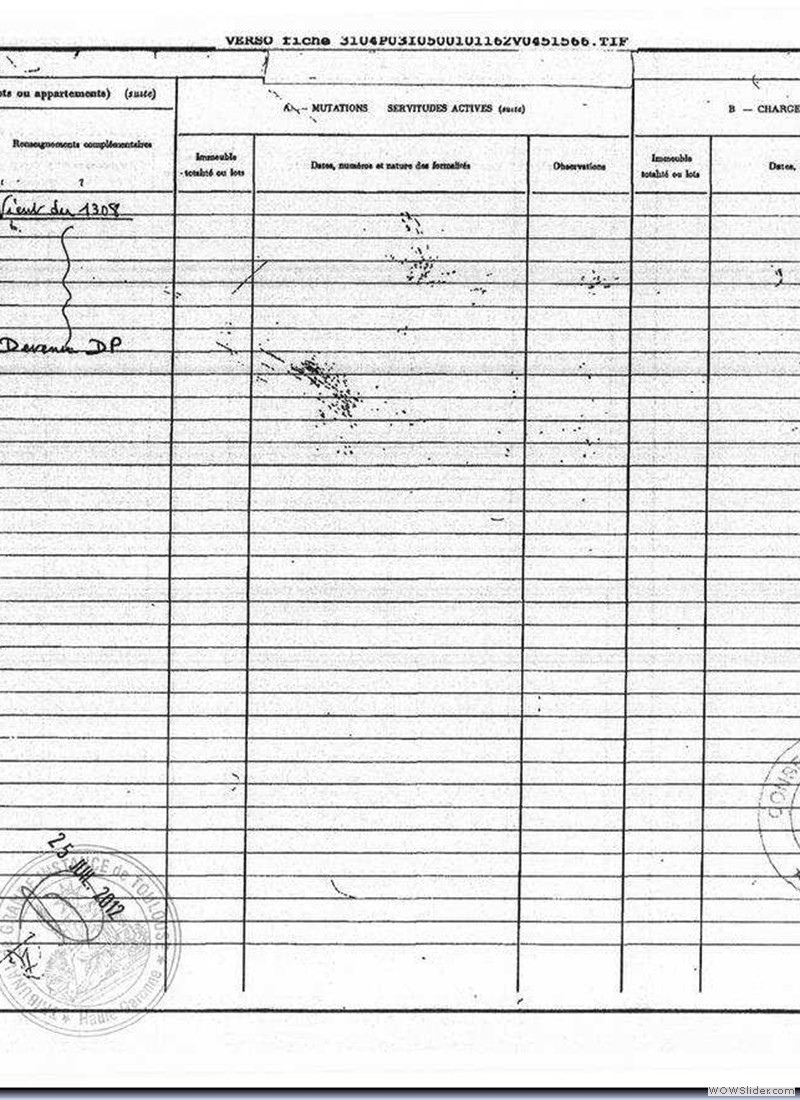 VERSO fiche 3104P03I0500101162V0451566.TIF
ots ou appartements) (suite)
A. — MUTATIONS SERVITUDES ACTIVES (suite)
B — CHARGE
Renseignements complémentaires
Immeuble
totalité ou lots
Dates, numéros et nature des formalités
Observations
Immeuble
totalité ou lots
Dates,
Vient du 1308
Devenu DP
CONSE
25 JUIL. 2012
GRANDE INSTANCE de TOULOUSE
TRIBUNAL
* Haute Garonne *
WOWSlider.com